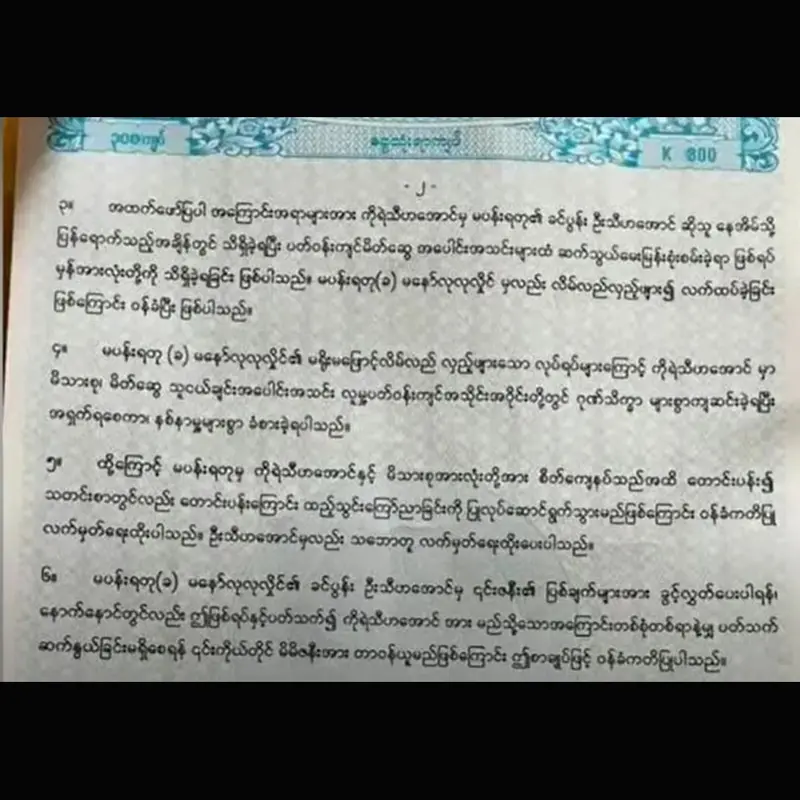 ၃၀၀ကျပ်
ငွေသုံးရာကျပ်
K 300
- ၂ -
၃။ အထက်ဖော်ပြပါ အကြောင်းအရာများအား ကိုရဲသီဟအောင်မှ မပန်းရတု၏ ခင်ပွန်း ဦးသီဟအောင် ဆိုသူ နေအိမ်သို့
ပြန်ရောက်သည့်အချိန်တွင် သိရှိခဲ့ရပြီး ပတ်ဝန်းကျင်မိတ်ဆွေ အပေါင်းအသင်းများထံ ဆက်သွယ်မေးမြန်းစုံစမ်းခဲ့ရာ ဖြစ်ရပ်
မှန်အားလုံးတို့ကို သိရှိခဲ့ရခြင်း ဖြစ်ပါသည်။ မပန်းရတု(ခ) မနော်လုလုလှိုင် မှလည်း လိမ်လည်လှည့်ဖျား၍ လက်ထပ်ခဲ့ခြင်း
ဖြစ်ကြောင်း ဝန်ခံပြီး ဖြစ်ပါသည်။
၄။ မပန်းရတု (ခ) မနော်လုလုလှိုင်၏ မရိုးမဖြောင့်လိမ်လည် လှည့်ဖျားသော လုပ်ရပ်များကြောင့် ကိုရဲသီဟအောင် မှာ
မိသားစု၊ မိတ်ဆွေ သူငယ်ချင်းအပေါင်းအသင်း လူမှုပတ်ဝန်းကျင်အသိုင်းအဝိုင်းတို့တွင် ဂုဏ်သိက္ခာ များစွာကျဆင်းခဲ့ရပြီး
အရှက်ရစေကာ၊ နစ်နာမှုများစွာ ခံစားခဲ့ရပါသည်။
၅။ ထို့ကြောင့် မပန်းရတုမှ ကိုရဲသီဟအောင်နှင့် မိသားစုအားလုံးတို့အား စိတ်ကျေနပ်သည်အထိ တောင်းပန်၍
သတင်းစာတွင်လည်း တောင်းပန်ကြောင်း ထည့်သွင်းကြော်ညာခြင်းကို ပြုလုပ်ဆောင်ရွက်သွားမည်ဖြစ်ကြောင်း ဝန်ခံကတိပြု
လက်မှတ်ရေးထိုးပါသည်။ ဦးသီဟအောင်မှလည်း သဘောတူ လက်မှတ်ရေးထိုးပေးပါသည်။
၆။ မပန်းရတု(ခ) မနော်လုလုလှိုင်၏ ခင်ပွန်း ဦးသီဟအောင်မှ ၎င်းဇနီး၏ ပြစ်ချက်များအား ခွင့်လွှတ်ပေးပါရန်၊
နောက်နောင်တွင်လည်း ဤဖြစ်ရပ်နှင့်ပတ်သက်၍ ကိုရဲသီဟအောင် အား မည်သို့သောအကြောင်းတစ်စုံတစ်ရာနဲ့မျှ ပတ်သက်
ဆက်နွယ်ခြင်းမရှိစေရန် ၎င်းကိုယ်တိုင် မိမိဇနီးအား တာဝန်ယူမည်ဖြစ်ကြောင်း ဤစာချုပ်ဖြင့် ဝန်ခံကတိပြုပါသည်။